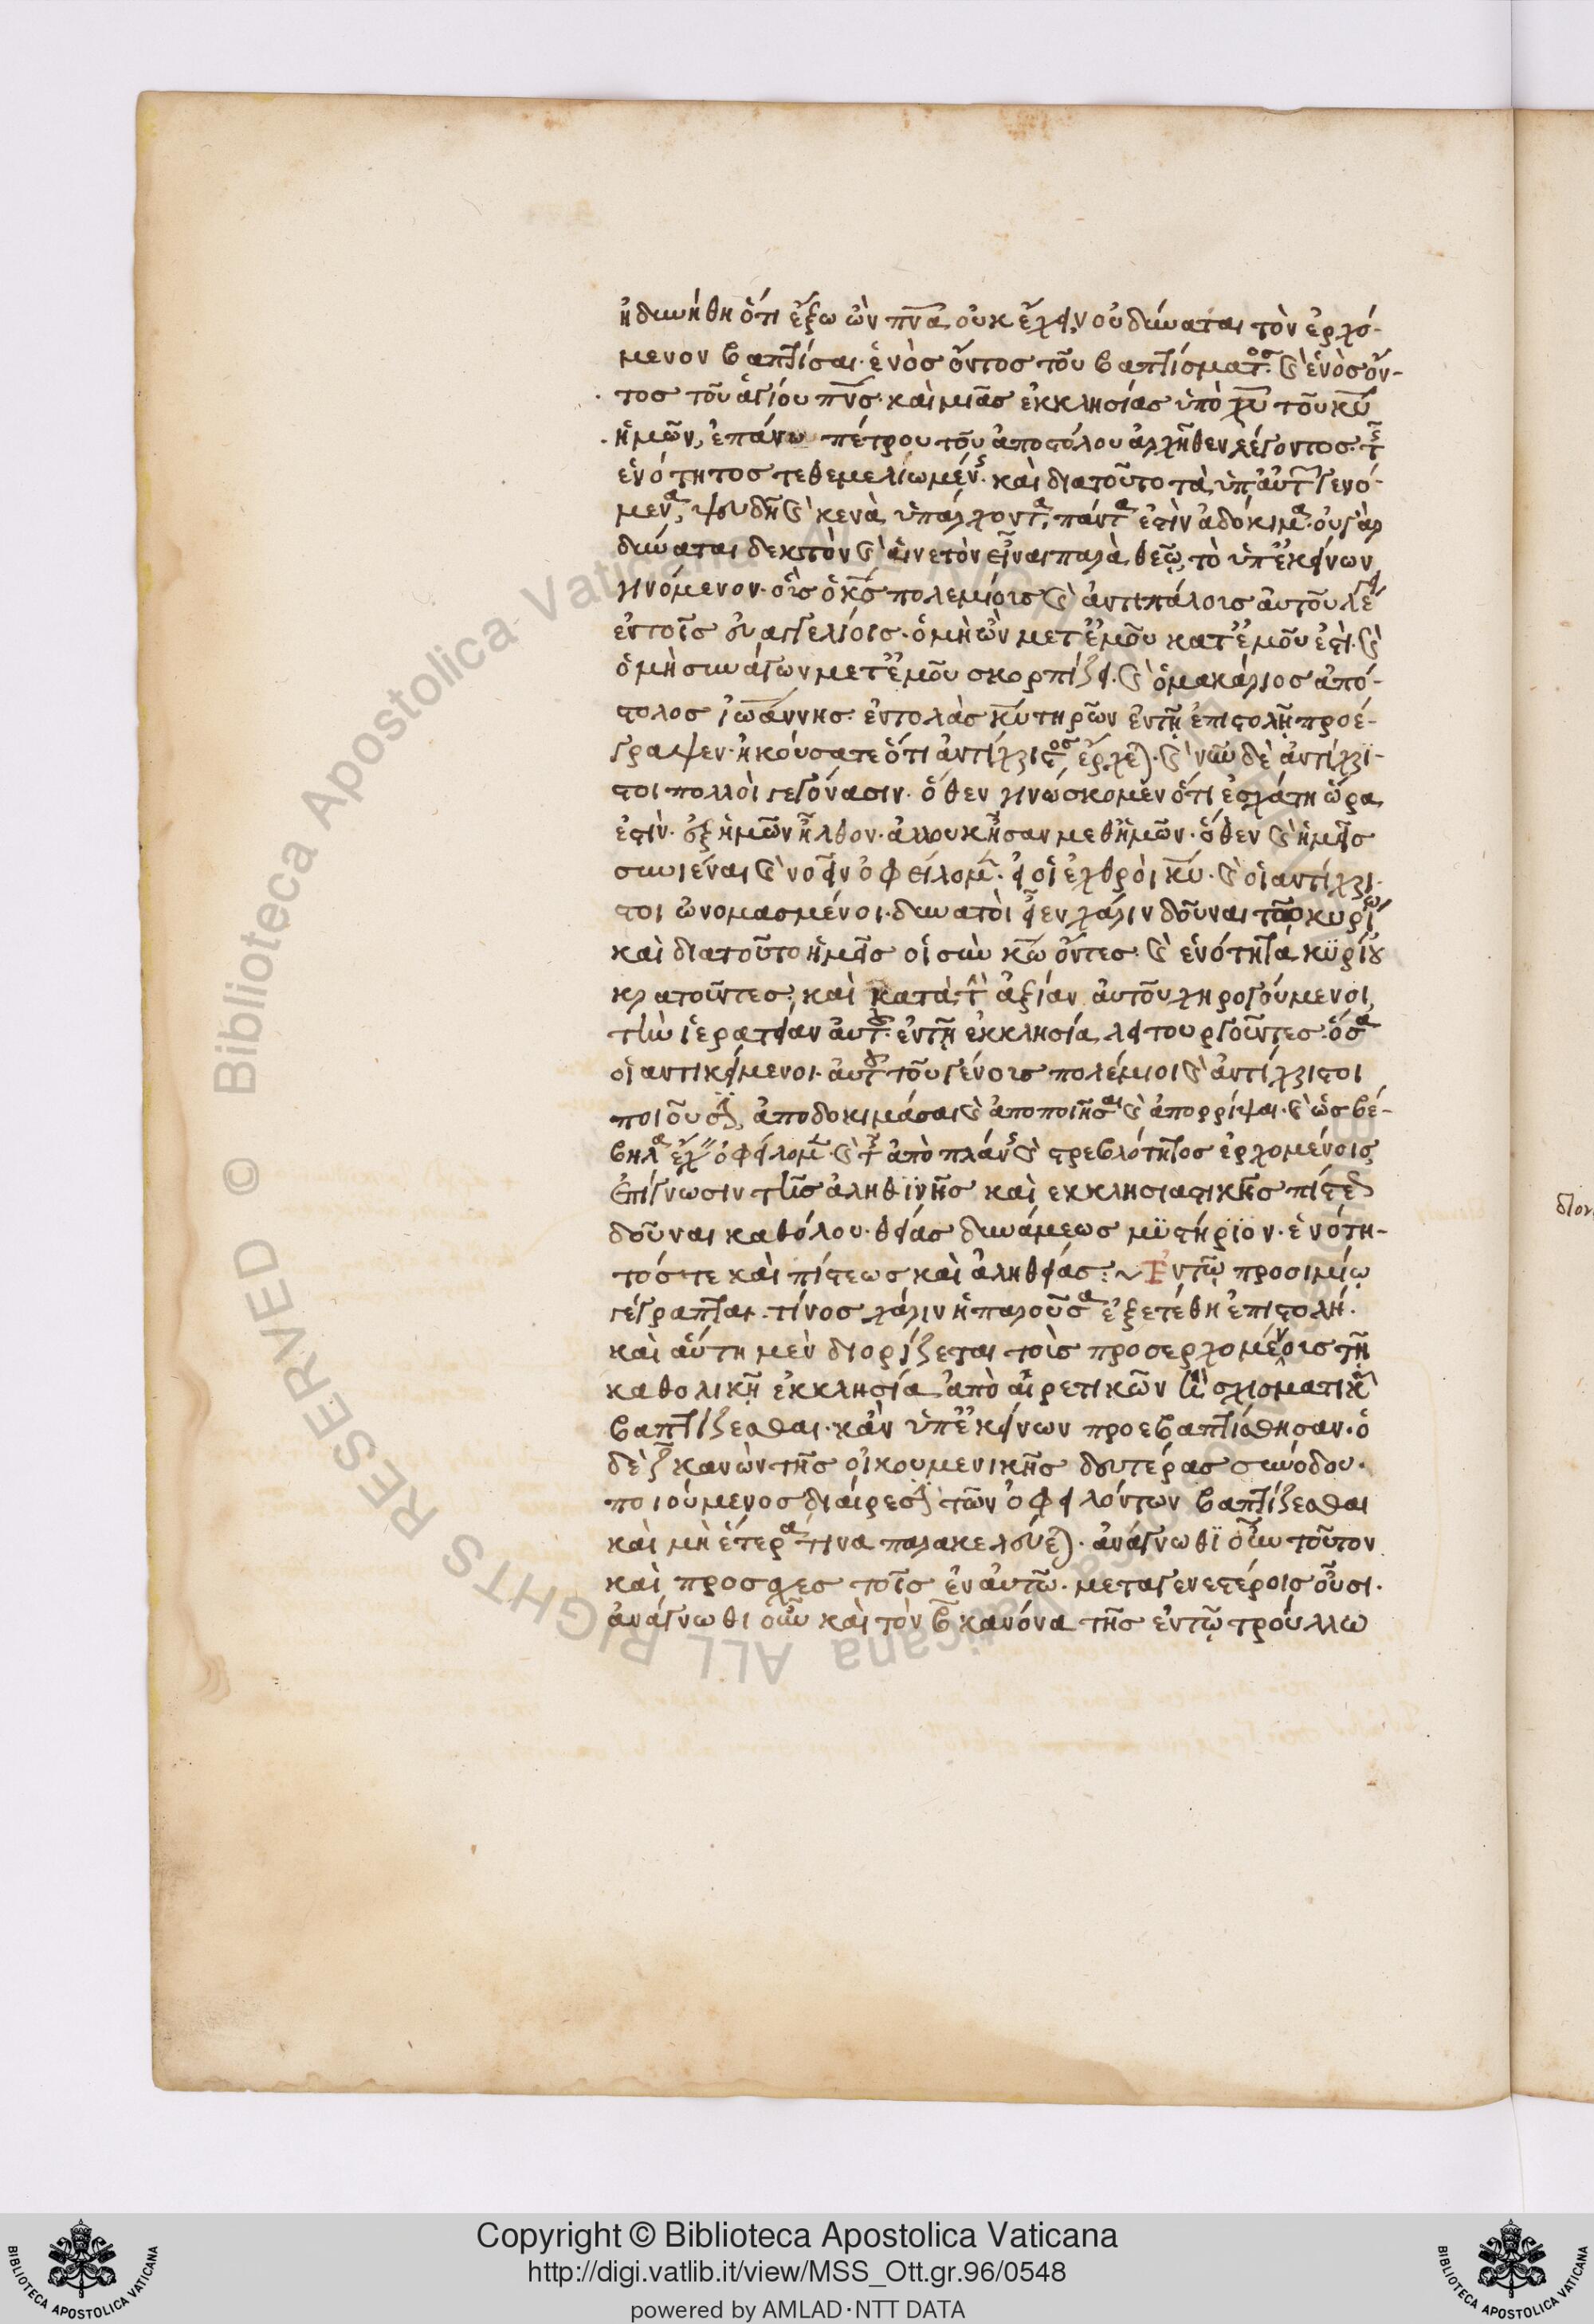 ἠδυνήθη ὅτι ἔξω ὢν πνᾶ οὐκ ἔχει, οὐ δύναται τὸν ἐρχό-
μενον βαπτίσαι· ἑνὸσ ὄντοσ τοῦ βαπτίσματος. καὶ ἑνὸσ ὄν-
τοσ τοῦ ἁγίου πνσ· καὶ μιᾶσ ἐκκλησίασ ὑπὸ χυ τοῦ κυ
ἡμῶν, ἐπάνω πέτρου τοῦ ἀποστόλου ἀρχῆθεν λέγοντοσ· τῆς
ἑνότητοσ τεθεμελιωμένης· καὶ διατοῦτο τὰ ὑπ' αὐτῶν γενό-
μενα, ψευδῆ καὶ κενὰ ὑπάρχοντα, πάντα ἐστὶν ἀδόκιμα· οὐ γὰρ
δύναται δεκτὸν καὶ αἱνετὸν εἶναι παρὰ θεῷ, τὸ ὑπ' ἐκείνων
γινόμενον· οἷσ ὁ κσ πολεμίοισ καὶ ἀντιπάλοισ αὐτοῦ λέγει
ἐν τοῖσ εὐαγγελίοισ· ὁ μὴ ὢν μετ' ἐμοῦ κατ' ἐμοῦ ἐστι· καὶ
ὁ μὴ συνάγων μετ' ἐμοῦ σκορπίζει· καὶ ὁ μακάριοσ ἀπό-
στολοσ ἰωάννησ· ἐντολὰσ κυ τηρῶν ἐν τῇ ἐπιστολῇ προέ-
γραψεν· ἠκούσατε ὅτι ἀντίχριστος ἔρχεται· καὶ νῦν δὲ ἀντίχρι-
στοι πολλοὶ γεγόνασιν· ὅθεν γινώσκομεν ὅτι ἐσχάτη ὥρα
ἐστὶν· ἐξ ἡμῶν ἦλθον· ἀλλ' οὐκ ἦσαν μεθ' ἡμῶν· ὅθεν καὶ ἡμεῖσ
συνιέναι καὶ νοεῖν ὀφείλομεν· εἰ οἱ ἐχθροὶ κυ· καὶ οἱ ἀντίχρι-
στοι ὠνομασμένοι· δυνατοὶ εἶεν χάριν δοῦναι τῷ κυρίω
καὶ διατοῦτο ἡμεῖσ οἱ σὺν κω ὄντεσ· καὶ ἑνότητα κϋρίου
κρατοῦντεσ, καὶ κατὰ τὴν ἀξίαν αὐτοῦ χηρογούμενοι,
τὴν ἱερατείαν αὐτοῦ ἐν τῇ ἐκκλησία λειτουργοῦντεσ· ὅσα
οἱ αντικείμενοι αὐτοῦ τοῦ γένοισ πολέμιοι καὶ ἀντίχριστοι
ποιοῦσιν, ἀποδοκιμάσαι καὶ ἀποποιῆσαι καὶ ἀπορρίψαι· καὶ ὡσ βέ-
βηλα ἔχειν ὀφείλομεν· καὶ τοῖς ἀπὸ πλάνης καὶ στρεβλότητοσ ἐρχομένοισ
ἐπίγνωσιν τῆσ ἀληθϊνῆσ καὶ εκκλησιαστικῆσ πίστεως
δοῦναι καθόλου· θείασ δυνάμεωσ μϋστήρϊον· ἑνότη-
τόσ τε καὶ πίστεωσ καὶ ἀληθείασ :~ Ἐν τῷ προοιμίῳ
γέγραπται· τίνοσ χάριν ἡ παροῦσα ἐξετέθη ἐπιστολή·
καὶ αὕτη μὲν διορίζεται τοῖσ προσερχομένοισ τῇ
καθολικῇ ἐκκλησία ἀπὸ αἱρετικῶν καὶ σχισματικῶν
βαπτίζεσθαι· κἂν ὑπ' ἐκείνων προεβαπτίσθησαν· ὁ
δὲ ζ κανὼν τῆσ οἰκουμενικῆσ δευτέρασ συνόδου·
ποιούμενοσ διαίρεσιν τῶν ὀφειλόντων βαπτίζεσθαι
καὶ μὴ ἕτερα τινα παρακελεύεται· ἀνάγνωθϊ οὖν τοῦτον
καὶ προσχεσ τοῖσ ἐν αὐτῷ· μεταγενεστέροισ οὖσι·
ἀνάγνωθι οὖν καὶ τὸν β κανόνα τῆσ ἐν τῷ τρούλλω
Biblioteca Apostolica Vaticana
ALL RIGHTS RESERVED ©
Copyright © Biblioteca Apostolica Vaticana
http://digi.vatlib.it/view/MSS_Ott.gr.96/0548
powered by AMLAD·NTT DATA
BIBLIOTECA APOSTOLICA VATICANA
BIBLIOTECA APOSTOLICA VATICANA